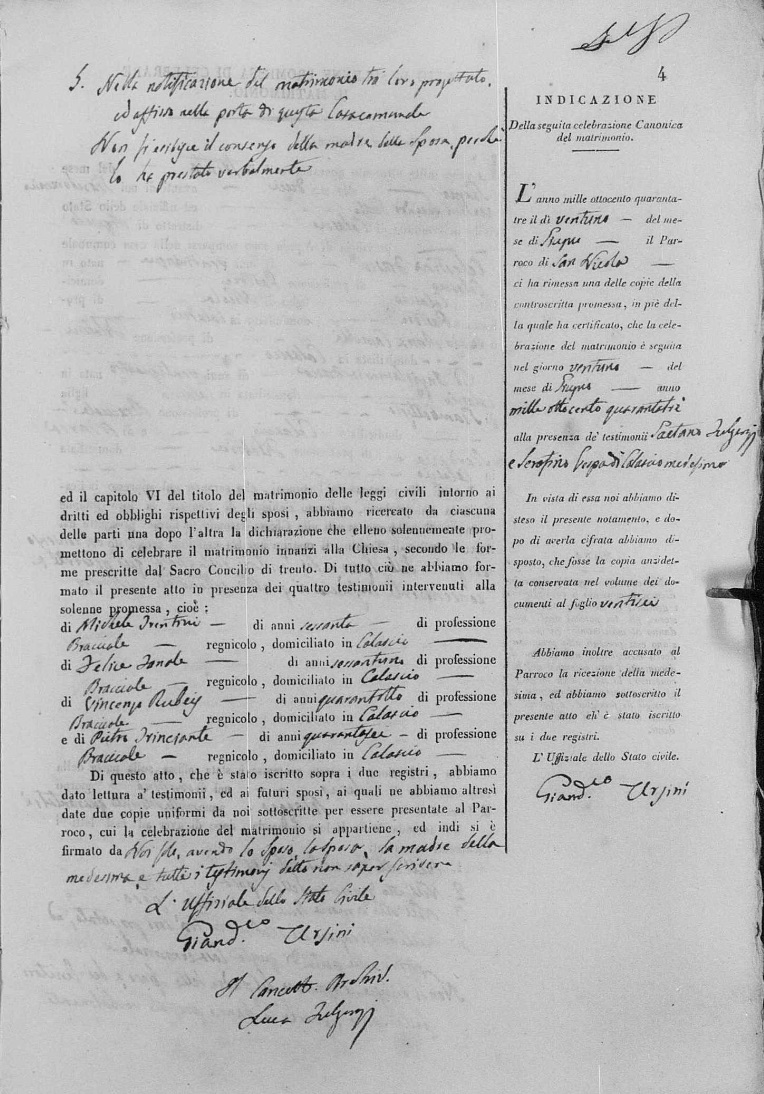 5. Nella notificazione del matrimonio tra loro progettato,
ed affissa nella porta di questa Casa comunale
Non si esibisce il consenso della madre della Sposa, perchè
lo ha prestato verbalmente
ed il capitolo VI del titolo del matrimonio delle leggi civili intorno ai
dritti ed obblighi rispettivi degli sposi, abbiamo ricercato da ciascuna
delle parti una dopo l'altra la dichiarazione che elleno solennemente pro-
mettono di celebrare il matrimonio innanzi alla Chiesa, secondo le for-
me prescritte dal Sacro Concilio di trento. Di tutto ciò ne abbiamo for-
mato il presente atto in presenza dei quattro testimonii intervenuti alla
solenne promessa, cioè:
di Michele — di anni sessanta — di professione
Bracciale — regnicolo, domiciliato in Calascio —
di Felice — di anni sessantuno di professione
Bracciale — regnicolo, domiciliato in Calascio —
di Vincenzo — di anni quarantotto di professione
Bracciale — regnicolo, domiciliato in Calascio —
e di Pietro — di anni quarantasei — di professione
Bracciale — regnicolo, domiciliato in Calascio —
Di questo atto, che è stato iscritto sopra i due registri, abbiamo
dato lettura a' testimonii, ed ai futuri sposi, ai quali ne abbiamo altresì
date due copie uniformi da noi sottoscritte per essere presentate al Par-
roco, cui la celebrazione del matrimonio si appartiene, ed indi si è
firmato da Noi solo, avendo lo Sposo, la Sposa, la madre della
medesima, e tutti i testimonj detto non saper scrivere
L'Uffiziale dello Stato Civile
Giand.co Ursini
Il Cancell. Archiv.
Luca
4
INDICAZIONE
Della seguita celebrazione Canonica
del matrimonio.
L'anno mille ottocento quaranta-
tre il dì ventuno — del me-
se di — il Par-
roco di San Nicola —
ci ha rimessa una delle copie della
controscritta promessa, in piè del-
la quale ha certificato, che la cele-
brazione del matrimonio è seguita
nel giorno ventuno — del
mese di — anno
mille ottocento quarantatrè
alla presenza de' testimonii Gaetano
e Serafino Vespa di Calascio medesimo
In vista di essa noi abbiamo di-
steso il presente notamento, e do-
po di averla cifrata abbiamo di-
sposto, che fosse la copia anzidet-
ta conservata nel volume dei do-
cumenti al foglio ventisei
Abbiamo inoltre accusato al
Parroco la ricezione della mede-
sima, ed abbiamo sottoscritto il
presente atto ch' è stato iscritto
su i due registri.
L' Uffiziale dello Stato civile.
Giand.co Ursini